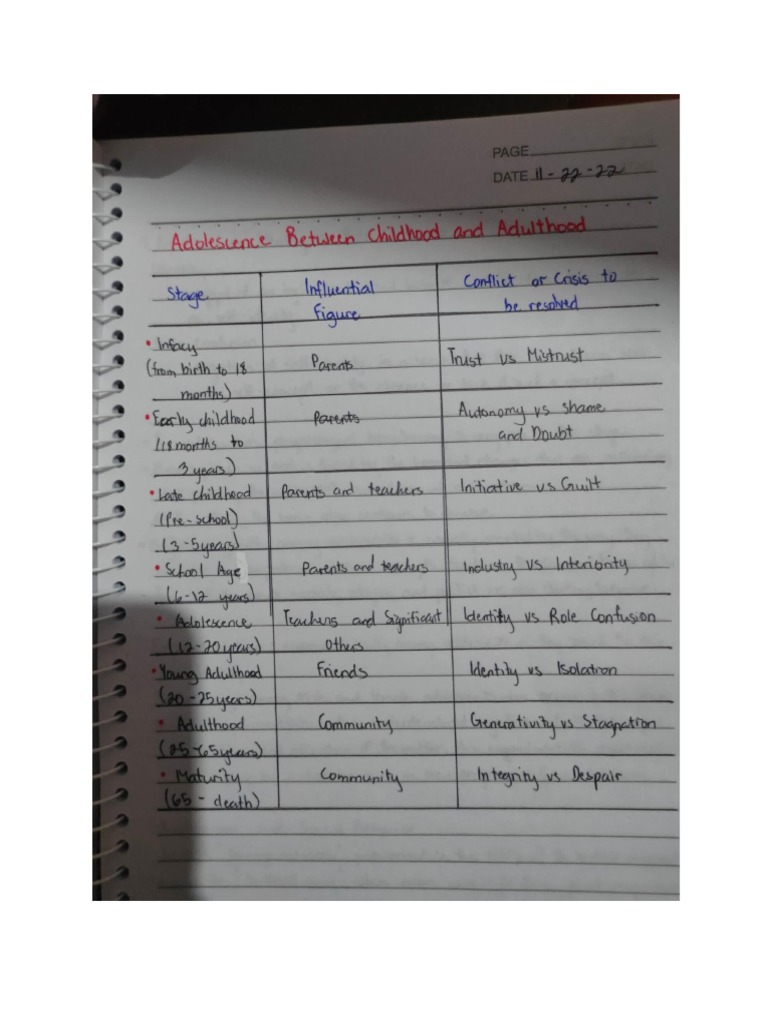 PAGE
DATE 11-22-22
Adolescence Between Childhood and Adulthood
Stage
Influential
Figure
Conflict or Crisis to
be resolved
• Infacy
(from birth to 18
months)
Parents
Trust vs Mistrust
• Early childhood
(18 months to
3 years)
Parents
Autonomy vs shame
and Doubt
• Late childhood
(Pre-school)
(3-5years)
Parents and teachers
Initiative vs Guilt
• School Age
(6-12 years)
Parents and teachers
Industry vs Interiority
• Adolescence
(12-20 years)
Teachers and Significant
Others
Identity vs Role Confusion
• Young Adulthood
(20-25years)
Friends
Identity vs Isolation
• Adulthood
(25-65years)
Community
Generativity vs Stagnation
• Maturity
(65 - death)
Community
Integrity vs Despair